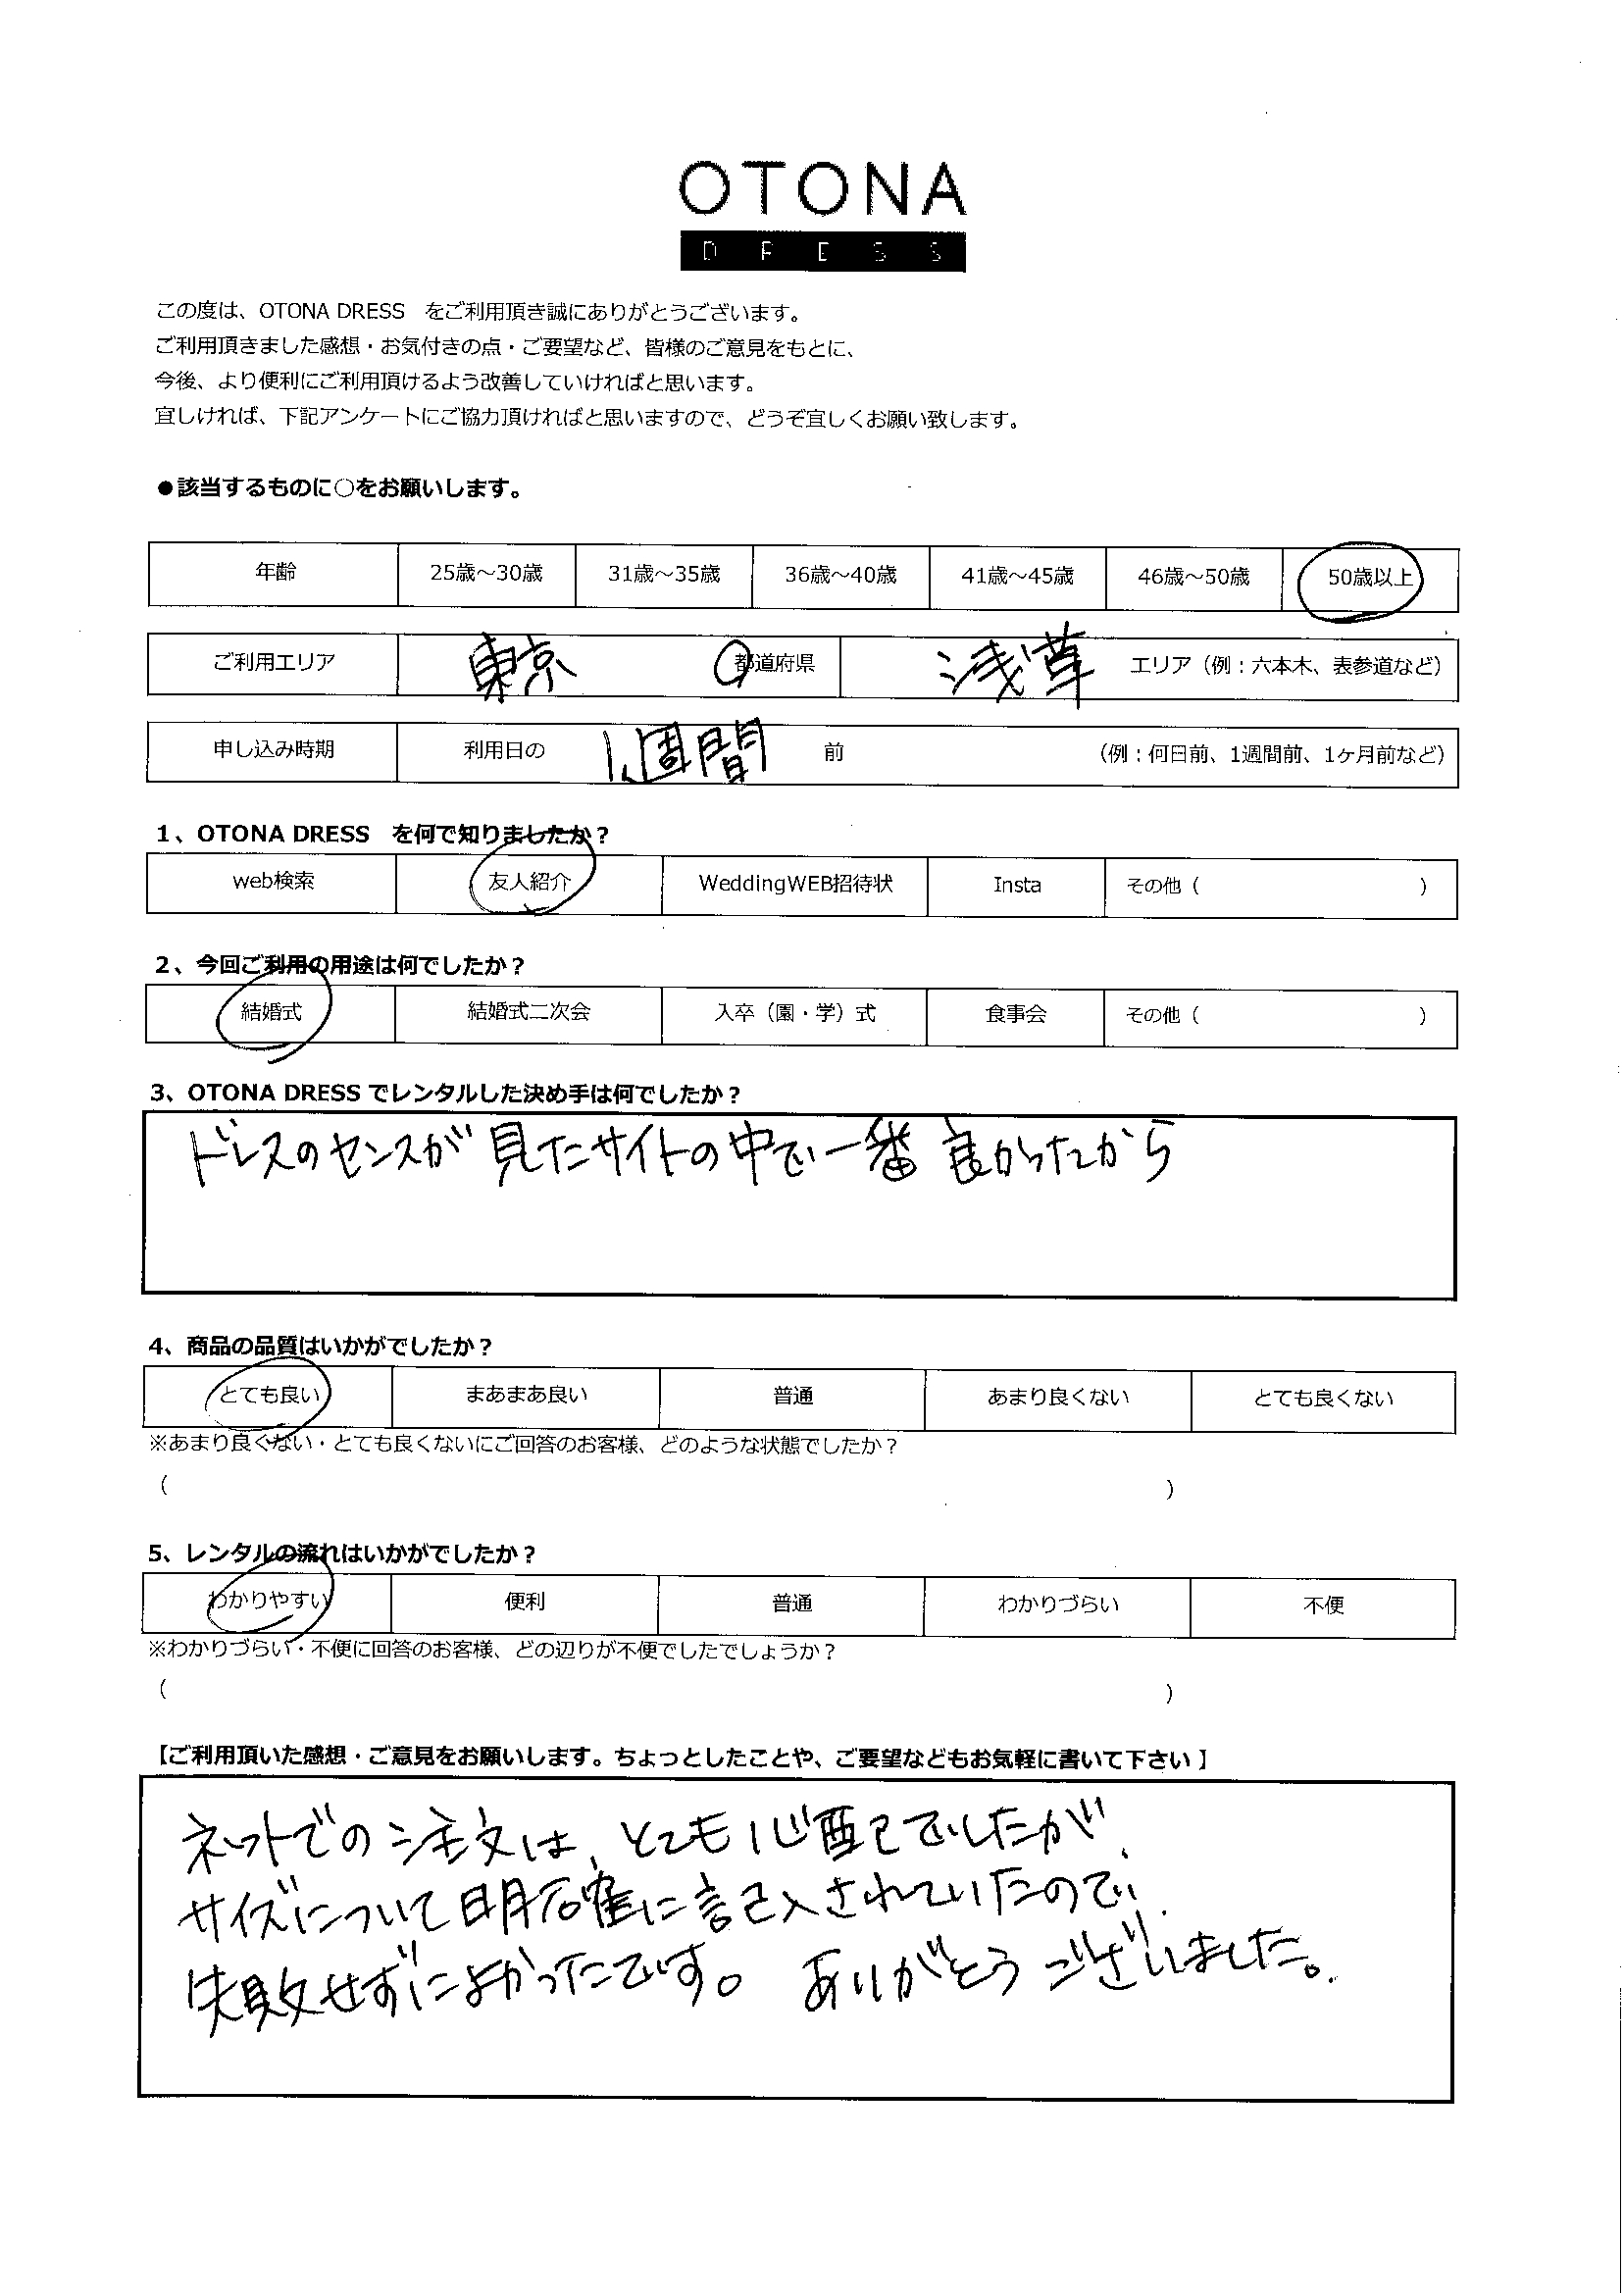 OTONA
DRESS
この度は、OTONA DRESS　をご利用頂き誠にありがとうございます。
ご利用頂きました感想・お気付きの点・ご要望など、皆様のご意見をもとに、
今後、より便利にご利用頂けるよう改善していければと思います。
宜しければ、下記アンケートにご協力頂ければと思いますので、どうぞ宜しくお願い致します。
●該当するものに○をお願いします。
年齢 25歳～30歳 31歳～35歳 36歳～40歳 41歳～45歳 46歳～50歳 50歳以上
ご利用エリア 東京 都道府県 浅草 エリア（例：六本木、表参道など）
申し込み時期 利用日の 1週間 前 （例：何日前、1週間前、1ヶ月前など）
1、OTONA DRESS　を何で知りましたか？
web検索 友人紹介 WeddingWEB招待状 Insta その他（ ）
2、今回ご利用の用途は何でしたか？
結婚式 結婚式二次会 入卒（園・学）式 食事会 その他（ ）
3、OTONA DRESS でレンタルした決め手は何でしたか？
ドレスのセンスが見たサイトの中で一番良かったから
4、商品の品質はいかがでしたか？
とても良い まあまあ良い 普通 あまり良くない とても良くない
※あまり良くない・とても良くないにご回答のお客様、どのような状態でしたか？
（ ）
5、レンタルの流れはいかがでしたか？
わかりやすい 便利 普通 わかりづらい 不便
※わかりづらい・不便に回答のお客様、どの辺りが不便でしたでしょうか？
（ ）
【ご利用頂いた感想・ご意見をお願いします。ちょっとしたことや、ご要望などもお気軽に書いて下さい】
ネットでの注文は、とても心配でしたが、
サイズについて明確に記入されていたので、
失敗せずによかったです。ありがとうございました。